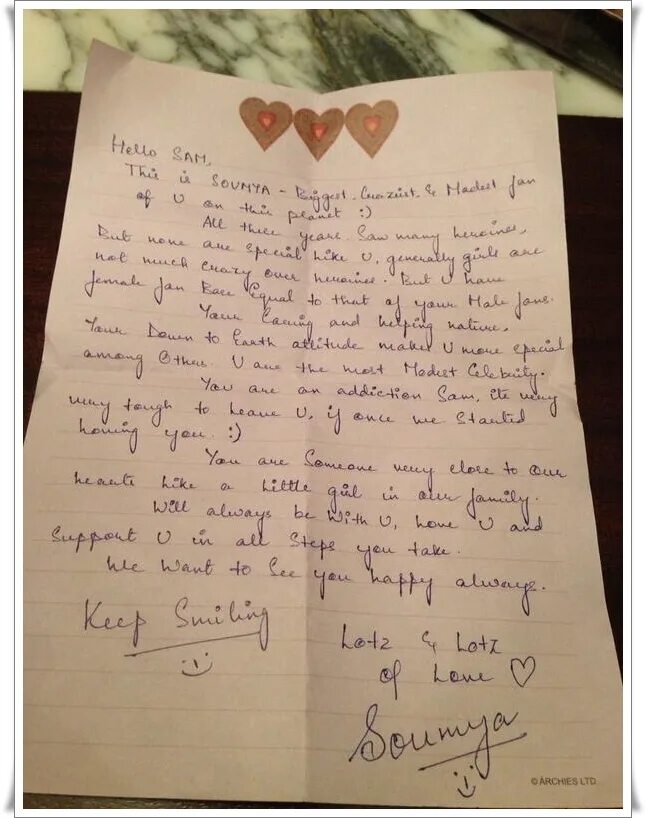 Hello SAM,
This is SOUMYA - Biggest, Craziest & Madest fan
of U on this planet :)
All these years Saw many heroines,
But none are special like U, generally girls are
not much crazy over heroines. But U have
female fan Base Equal to that of your Male fans.
Your Caring and helping nature,
Your Down to Earth attitude makes U more special
among Others. U are the most Modest Celebrity.
You are an addiction Sam, its very
very tough to leave U, if once we started
loving you :)
You are Someone very close to our
hearts like a little girl in our family.
Will always be With U, Love U and
Support U in all Steps you take.
We Want to See you happy always.
Keep Smiling
Lotz & Lotz
of Love
Soumya
© ARCHIES LTD.